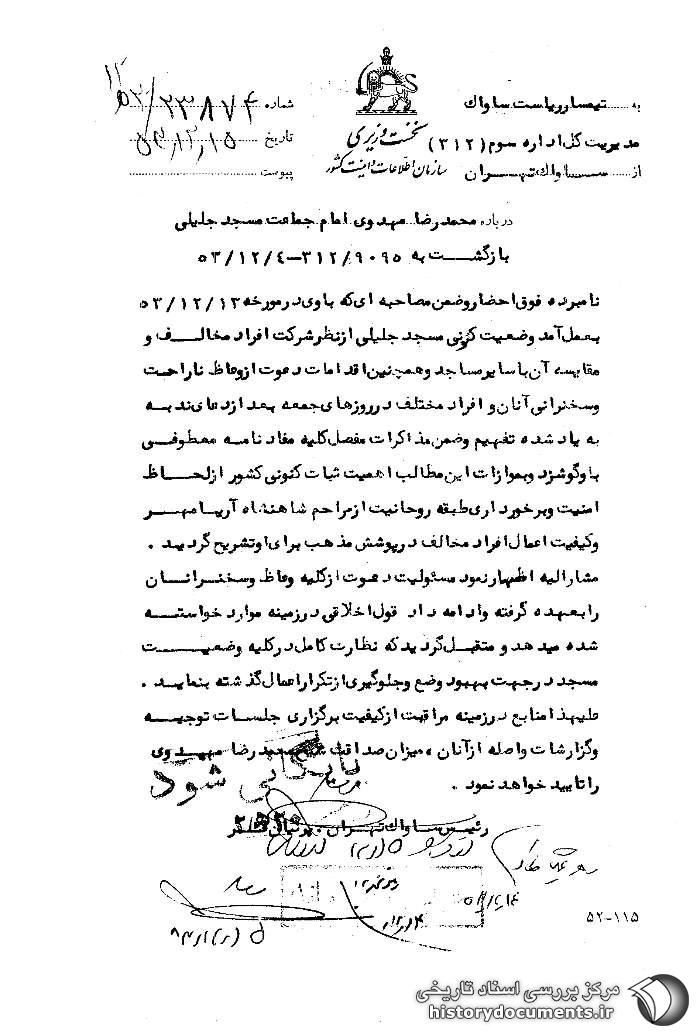 به تیمسار ریاست ساواك
مدیریت کل اداره سوم (۳۱۲)
از ساواك تهران
نخست وزیری
سازمان اطلاعات و امنیت کشور
شماره ۲۳۸۷۴/
تاریخ ۵۳،۱۲،۱۵
پیوست
درباره محمدرضا مهدوی امام جماعت مسجد جلیلی
بازگشت به ۳۱۲/۹۰۹۵-۵۳/۱۲/۴
نامبرده فوق احضار و ضمن مصاحبه ای که با وی در مورخه ۵۳/۱۲/۱۳
بعمل آمد وضعیت کنونی مسجد جلیلی از نظر شرکت افراد مخالف و
مقایسه آن با سایر مساجد و همچنین اقدامات دعوت از وعاظ ناراحت
و سخنرانی آنان و افراد مختلف در روزهای جمعه بعد از دعای ندبه
به یاد شده تفهیم و ضمن مذاکرات مفصل کلیه مفاد نامه معطوفی
باو گوشزد و بموازات این مطالب اهمیت ثبات کنونی کشور از لحاظ
امنیت و برخورداری طبقه روحانیت از مراحم شاهنشاه آریامهر
و کیفیت اعمال افراد مخالف در پوشش مذهب برای او تشریح گردید .
مشارالیه اظهار نمود مسئولیت دعوت از کلیه وعاظ و سخنرانان
را بعهده گرفته و ادامه داد قول اخلاقی در زمینه موارد خواسته
شده میدهد و متقبل گردید که نظارت کامل در کلیه وضعیت
مسجد در جهت بهبود وضع و جلوگیری از تکرار اعمال گذشته بنماید .
علیهذا منابع در زمینه مراقبت از کیفیت برگزاری جلسات توجیه
و گزارشات واصله از آنان ، میزان صداقت شیخ محمدرضا مهدوی
را تایید خواهد نمود .
بایگانی شود
رئیس ساواك تهران . پرنیان فر
۵۲-۱۱۵
مرکز بررسی اسناد تاریخی
historydocuments.ir